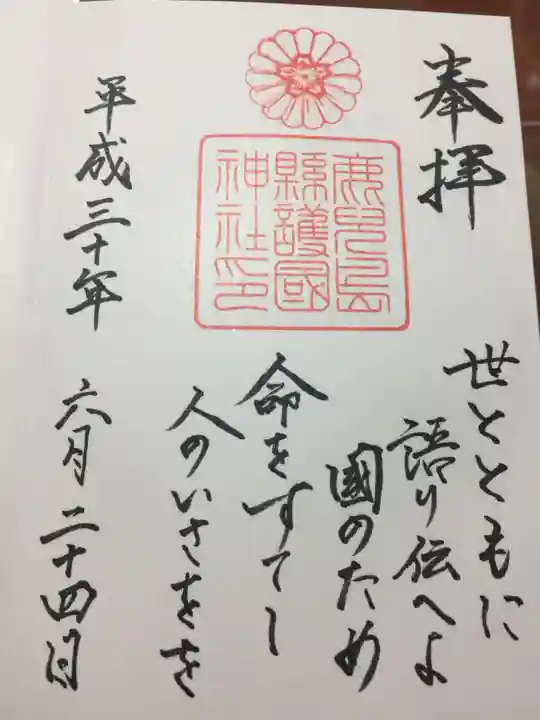 奉拝
鹿児島
縣護國
神社印
世とともに
語り伝へよ
國のため
命をすてし
人のいさをを
平成三十年 六月 二十四日